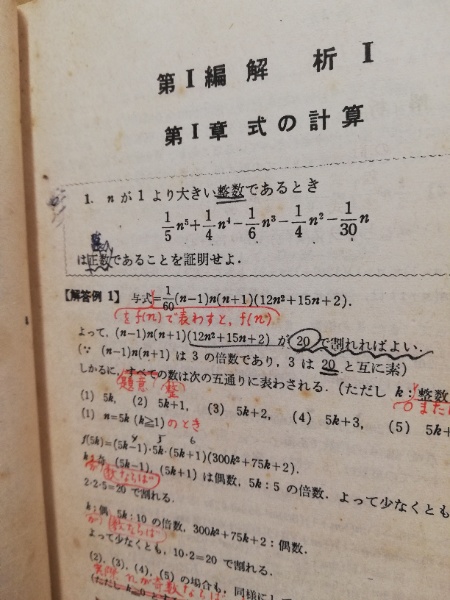 第Ⅰ編 解 析 Ⅰ
第Ⅰ章 式の計算
1. n が 1 より大きい整数であるとき
1/5 n⁵+1/4 n⁴−1/6 n³−1/4 n²−1/30 n
整
は正数であることを証明せよ.
【解答例 1】 与式=1/60(n−1)n(n+1)(12n²+15n+2).
をf(n)で表わすと, f(n)
よって, (n−1)n(n+1)(12n²+15n+2) が 20 で割れればよい.
(∵ (n−1)n(n+1) は 3 の倍数であり, 3 は 20 と互に素)
しかるに, すべての数は次の五通りに表わされる. (ただし k: 整数
題意 整
(1) 5k, (2) 5k+1, (3) 5k+2, (4) 5k+3, (5) 5k+
(1) n=5k (k≧1) のとき
f(5k)=(5k−1)·5k·(5k+1)(300k²+75k+2).
k:奇, (5k−1), (5k+1) は偶数, 5k:5 の倍数. よって少なくとも
奇数ならば
2·2·5=20 で割れる.
k:偶, 5k:10 の倍数, 300k²+75k+2:偶数.
が 数ならば
よって少なくとも, 10·2=20 で割れる.
(2), (3), (4), (5) の場合も, 同様にし
nが奇数ならば
(ただし k≧0